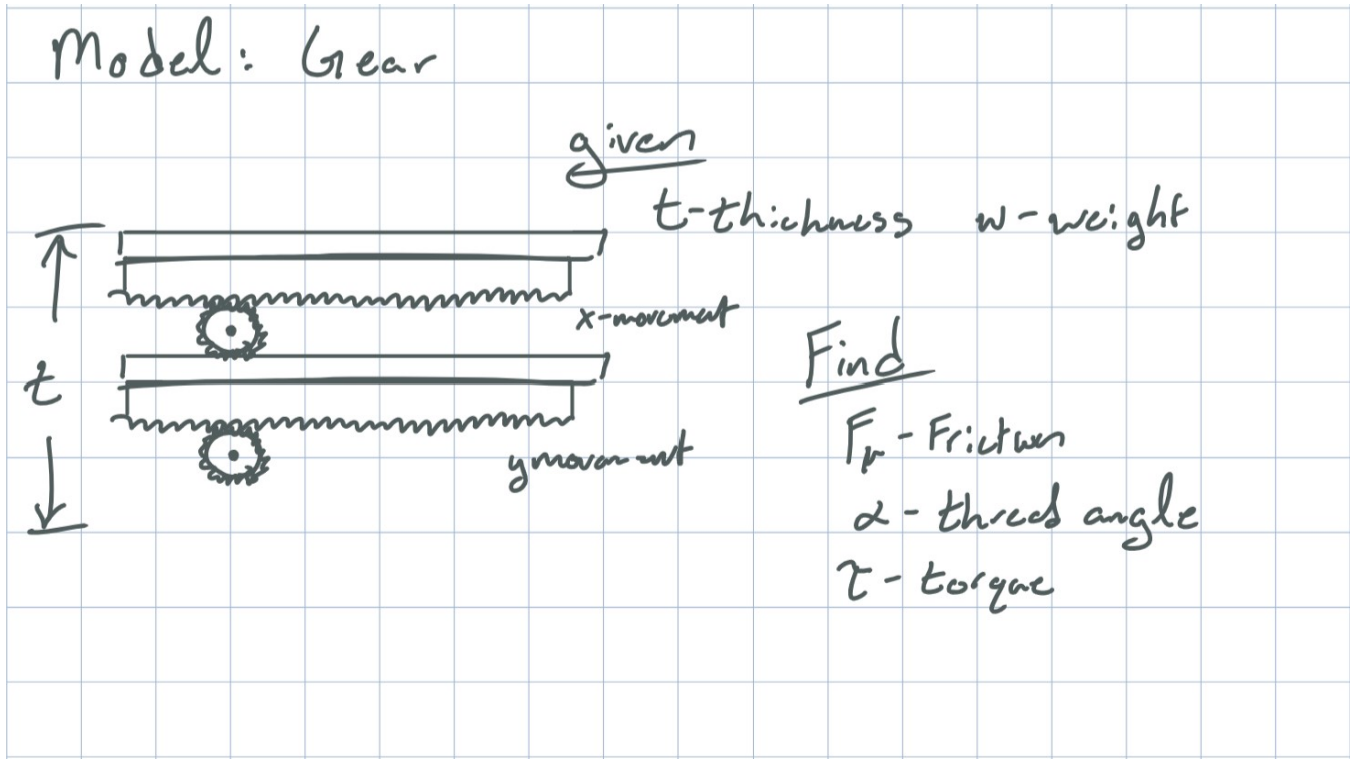 Model: Gear
given
t-thichness w-weight
x-movemat
t
Find
y movament
Fμ - Friction
α - thread angle
τ - torque